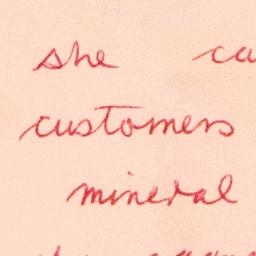 she ca
customers
mineral